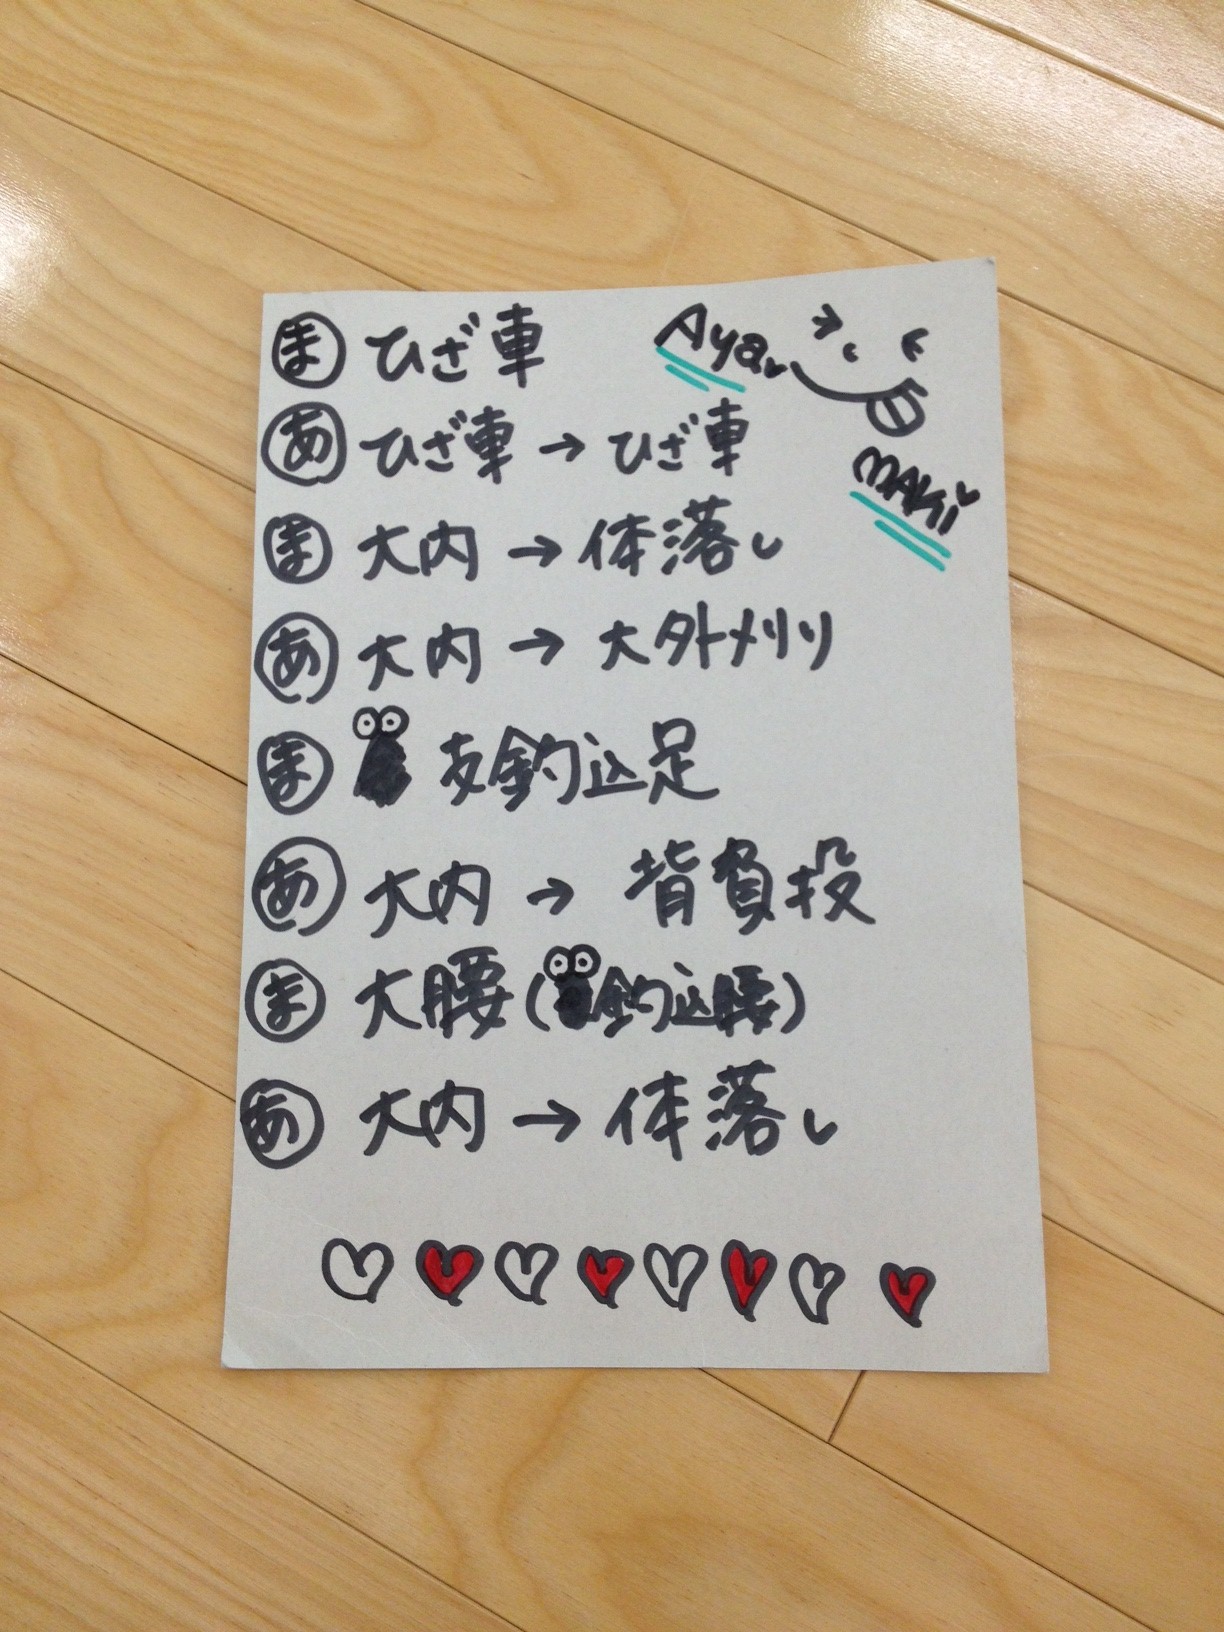 Aya
MAKi
ま ひざ車
あ ひざ車 → ひざ車
ま 大内 → 体落し
あ 大内 → 大外刈り
ま 支釣込足
あ 大内 → 背負投
ま 大腰(釣込腰)
あ 大内 → 体落し